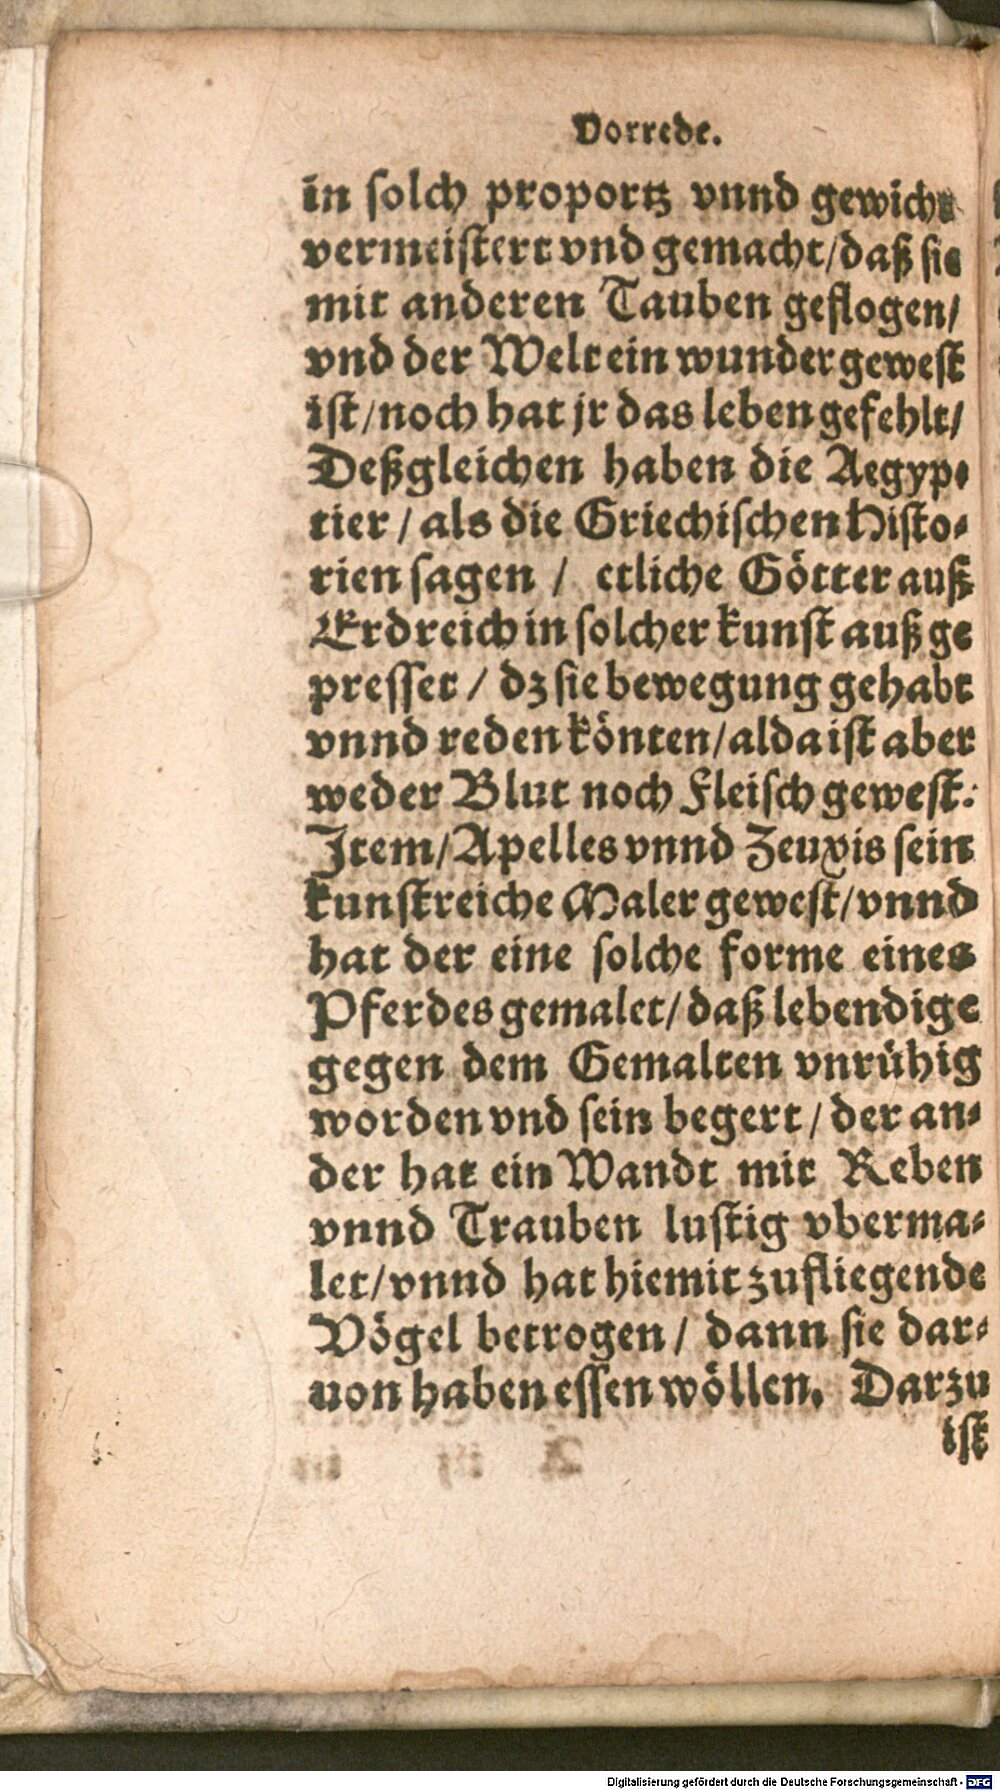 Vorrede.
in solch proportz vnnd gewicht
vermeistert vnd gemacht/daß sie
mit anderen Tauben geflogen/
vnd der Welt ein wunder gewest
ist/noch hat jr das leben gefehlt/
Deßgleichen haben die Aegyp-
tier/als die Griechischen Histo-
rien sagen / etliche Götter auß
Erdreich in solcher kunst außge
presset / dz sie bewegung gehabt
vnnd reden könten/alda ist aber
weder Blut noch Fleisch gewest.
Item/Apelles vnnd Zeuxis sein
kunstreiche Maler gewest/vnnd
hat der eine solche forme eines
Pferdes gemalet/daß lebendige
gegen dem Gemalten vnrühig
worden vnd sein begert/der an-
der hat ein Wandt mit Reben
vnnd Trauben lustig vberma-
let/vnnd hat hiemit zufliegende
Vögel betrogen/ dann sie dar-
uon haben essen wöllen. Darzu
ist
Digitalisierung gefördert durch die Deutsche Forschungsgemeinschaft - DFG